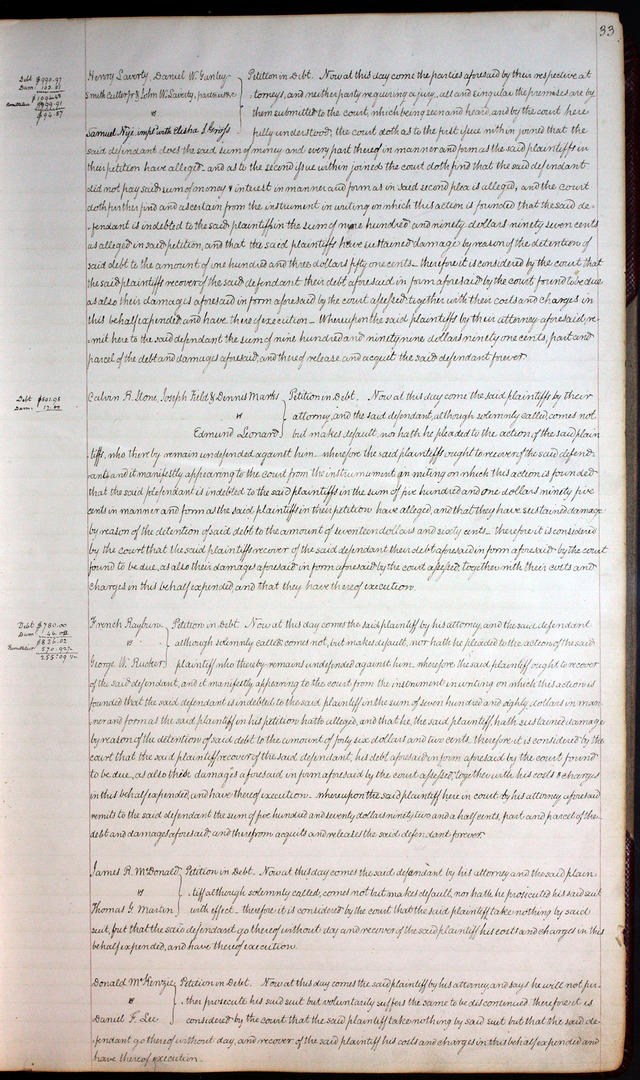 33
Debt $990.97
Dam: 103.51
$1094.48
Remittitur $999.91
$94.57
Henry Laverty, Daniel W. Gunley
Smith Cutter Jr & John W. Laverty, partners &c
vs
Samuel Nye, impl. with Elisha S Gross
Petition in Debt. Now at this day come the parties aforesaid by their respective at
torneys, and neither party requiring a jury, all and singular the premises are by
them submitted to the court, which being seen and heard, and by the court here
fully understood, the court doth as to the first issue within joined that the
said defendant does the said sum of money and every part thereof in manner and form as the said plaintiffs in
their petition have alleged - and as to the second issue within joined the court doth find that the said defendant
did not pay said sum of money & interest in manner and form as in said second plea is alleged, and the court
doth further find and ascertain from the instrument in writing on which this action is founded that the said de-
fendant is indebted to the said plaintiffs in the sum of nine hundred and ninety dollars ninety seven cents
as alleged in said petition, and that the said plaintiffs have sustained damage by reason of the detention of
said debt to the amount of one hundred and three dollars fifty one cents - therefore it is considered by the court that
the said plaintiffs recover of the said defendant their debt aforesaid in form aforesaid by the court found to be due
as also their damages aforesaid in form aforesaid by the court assessed, together with their costs and charges in
this behalf expended, and have thereof execution - Whereupon the said plaintiffs by their attorney aforesaid, re-
mit here to the said defendant the sum of nine hundred and ninety nine dollars ninety one cents, part and
parcel of the debt and damages aforesaid, and thereof release and acquit the said defendant forever.
Debt $501.95
Dam: 17.60
Calvin R. Stone, Joseph Field & Dennis Marks
vs
Edmund Leonard
Petition in Debt. Now at this day come the said plaintiffs by their
attorney, and the said defendant, although solemnly called, comes not
but makes default, nor hath he pleaded to the action of the said plain
tiffs, who thereby remain undefended against him - wherefore the said plaintiffs ought to recover of the said defend-
rants and it manifestly appearing to the court from the instrument in writing on which this action is founded
that the said defendant is indebted to the said plaintiffs in the sum of five hundred and one dollars ninety five
cents in manner and form as the said plaintiffs in their petition have alleged, and that they have sustained damage
by reason of the detention of said debt to the amount of seventeen dollars and sixty cents - therefore it is considered
by the court that the said plaintiffs recover of the said defendant their debt aforesaid in form aforesaid by the court
found to be due, as also their damages aforesaid in form aforesaid by the court assessed, together with their costs and
charges in this behalf expended and that they have thereof execution.
Debt $780.00
Dam 46.02
$826.02
Remittitur 570.92½
255.09½
French Rayburn
vs
George W. Rucker
Petition in Debt. Now at this day comes the said plaintiff by his attorney, and the said defendant
although solemnly called, comes not, but makes default, nor hath he pleaded to the action of the said
plaintiff who thereby remains undefended against him, wherefore the said plaintiff ought to recover
of the said defendant, and it manifestly appearing to the court from the instrument in writing on which this action is
founded that the said defendant is indebted to the said plaintiff in the sum of seven hundred and eighty dollars in man-
ner and form as the said plaintiff in his petition hath alleged, and that he, the said plaintiff hath sustained damage
by reason of the detention of said debt to the amount of forty six dollars and two cents. therefore it is considered by the
court that the said plaintiff recover of the said defendant, his debt aforesaid in form aforesaid by the court found
to be due, as also their damages aforesaid in form aforesaid by the court assessed, together with his costs & charges
in this behalf expended, and have thereof execution. whereupon the said plaintiff here in court by his attorney aforesaid
remits to the said defendant the sum of five hundred and seventy dollars ninety two and a half cents, part and parcel of the
debt and damages aforesaid, and therefrom acquits and releases the said defendant forever.
James R. McDonald
vs
Thomas G. Martin
Petition in Debt. Now at this day comes the said defendant by his attorney and the said plain
tiff although solemnly called, comes not but makes default, nor hath he prosecuted his said suit
with effect - therefore it is considered by the court that the said plaintiff take nothing by said
suit, but that the said defendant go thereof without day and recover of the said plaintiff his costs and charges in this
behalf expended, and have thereof execution.
Donald McKenzie
vs
Daniel F. Lee
Petition in Debt. Now at this day comes the said plaintiff by his attorney, and says he will not fur-
ther prosecute his said suit but voluntarily suffers the same to be discontinued. therefore it is
considered by the court that the said plaintiff take nothing by said suit but that the said de-
fendant go thereof without day, and recover of the said plaintiff his costs and charges in this behalf expended and
have thereof execution.